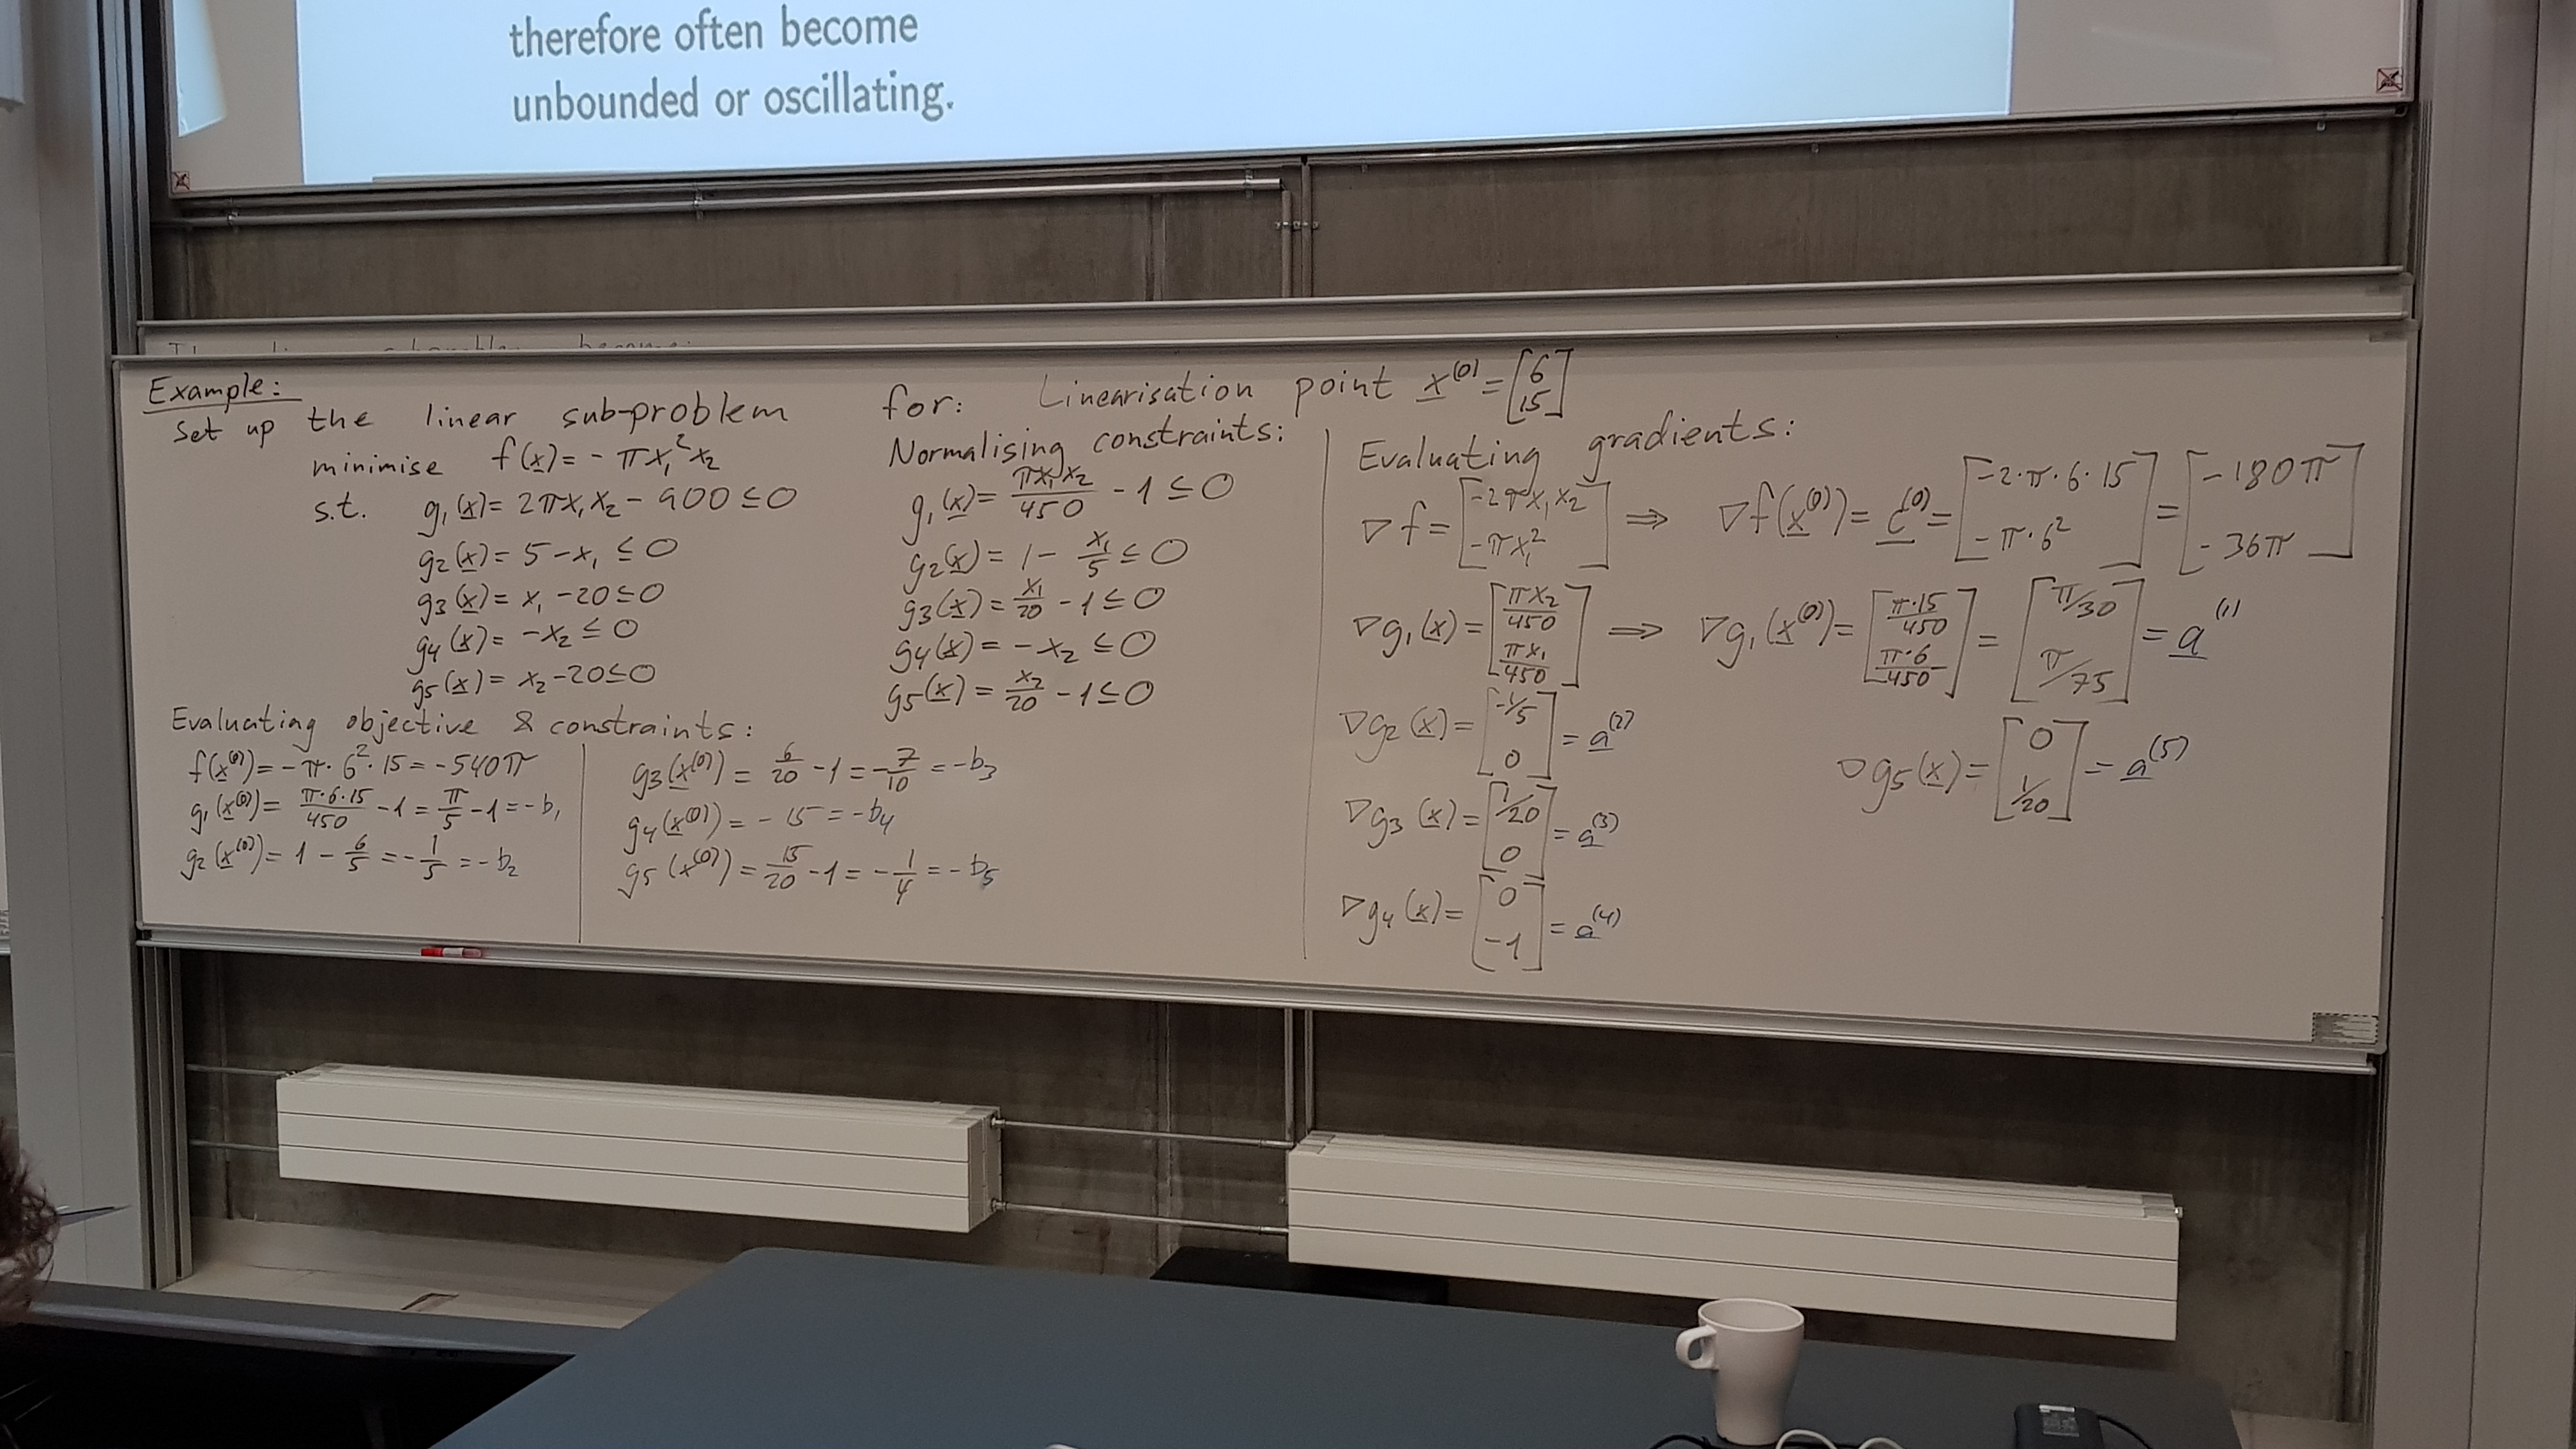 therefore often become
unbounded or oscillating.
Example:
Set up the linear sub-problem for: Linearisation point x^(0) = [6; 15]
minimise f(x) = - πx₁²x₂
s.t. g₁(x) = 2πx₁x₂ - 900 ≤ 0
g₂(x) = 5 - x₁ ≤ 0
g₃(x) = x₁ - 20 ≤ 0
g₄(x) = -x₂ ≤ 0
g₅(x) = x₂ - 20 ≤ 0
Normalising constraints:
g₁(x) = πx₁x₂/450 - 1 ≤ 0
g₂(x) = 1 - x₁/5 ≤ 0
g₃(x) = x₁/20 - 1 ≤ 0
g₄(x) = - x₂ ≤ 0
g₅(x) = x₂/20 - 1 ≤ 0
Evaluating objective & constraints:
f(x^(0)) = - π · 6² · 15 = - 540π
g₁(x^(0)) = π·6·15/450 - 1 = π/5 - 1 = -b₁
g₂(x^(0)) = 1 - 6/5 = - 1/5 = - b₂
g₃(x^(0)) = 6/20 - 1 = - 7/10 = -b₃
g₄(x^(0)) = - 15 = -b₄
g₅(x^(0)) = 15/20 - 1 = - 1/4 = - b₅
Evaluating gradients:
∇f = [-2πx₁x₂; -πx₁²] ⇒ ∇f(x^(0)) = c^(0) = [-2·π·6·15; -π·6²] = [-180π; -36π]
∇g₁(x) = [πx₂/450; πx₁/450] ⇒ ∇g₁(x^(0)) = [π·15/450; π·6/450] = [π/30; π/75] = a^(1)
∇g₂(x) = [-1/5; 0] = a^(2)
∇g₃(x) = [1/20; 0] = a^(3)
∇g₄(x) = [0; -1] = a^(4)
∇g₅(x) = [0; 1/20] = a^(5)